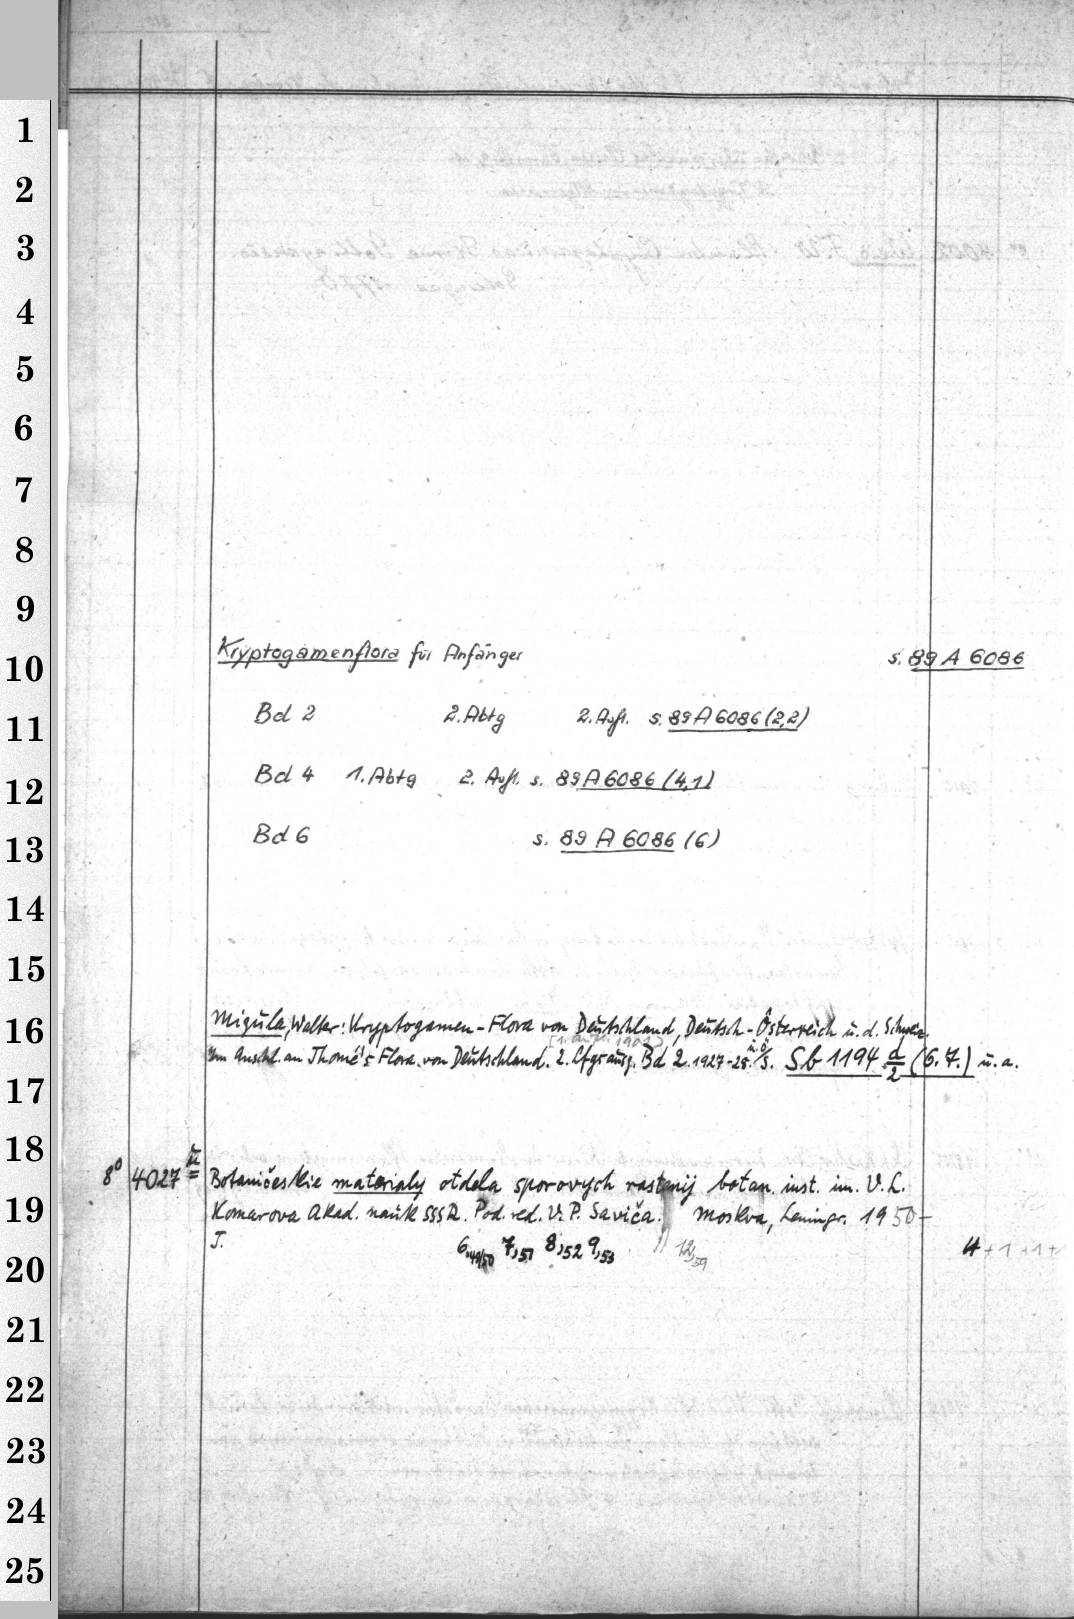 1
2
3
4
5
6
7
8
9
10
Kryptogamenflora für Anfänger s. 89 A 6086
11
Bd 2 2. Abtg 2. Aufl. s. 89 A 6086 (2,2)
12
Bd 4 1. Abtg 2. Aufl. s. 89 A 6086 (4,1)
13
Bd 6 s. 89 A 6086 (6)
14
15
16
Migula, Walter: Kryptogamen-Flora von Deutschland, Deutsch-Österreich u. d. Schweiz.
[1. Aufl. 1901]
Im Anschl. an Thomé's Flora von Deutschland. 2. Bd 2. 1927-28. s. Sb 1194 d/2 (6. 7.) u. a.
17
18
19
8° 4027 Botaničeskie materialy otdela sporovych rastenij botan. inst. im. V. L.
Komarova Akad. nauk SSSR. Pod. red. V. P. Saviča. Moskva, Leningr. 1950-
J. 6,49/50 7,51 8,52 9,53 12,59 4 + 1 + 1 +
20
21
22
23
24
25